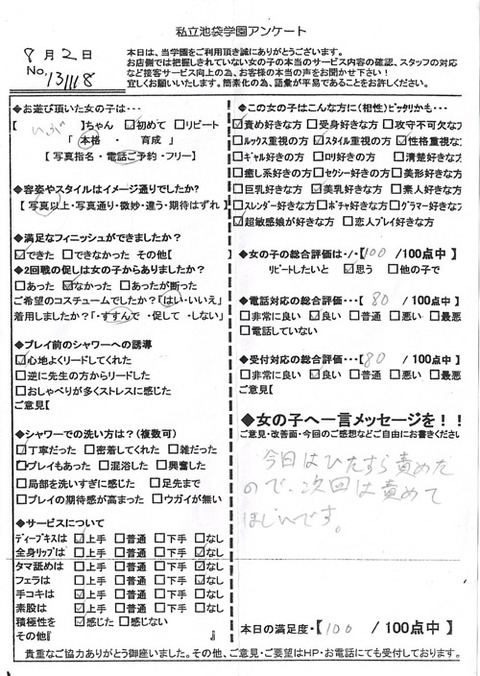 私立池袋学園アンケート
8月2日
No. 131118
本日は、当学園をご利用頂き誠にありがとうございます。
お店側では把握しきれていない女の子の本当のサービス内容の確認、スタッフの対応
など接客サービス向上の為、お客様の本当の声をお聞かせ下さい！
宜しくお願いいたします。簡素化の為、語彙が平易であることをお許しください。
◆お遊び頂いた女の子は・・・
【 いぶ 】ちゃん ☑初めて □リピート
「 本格 ・ 育成 」
【 写真指名 ・ 電話ご予約 ・ フリー】
◆容姿やスタイルはイメージ通りでしたか?
【 写真以上・写真通り・微妙・違う・期待はずれ 】
◆満足なフィニッシュができましたか?
☑できた □できなかった その他【
◆2回戦の促しは女の子からありましたか?
□あった ☑なかった □あったが断った
ご希望のコスチュームでしたか?「はい・いいえ」
着用しましたか?「・すすんで ・促して ・しない」
◆プレイ前のシャワーへの誘導
☑心地よくリードしてくれた
□逆に先生の方からリードした
□おしゃべりが多くストレスに感じた
ご意見【
◆シャワーでの洗い方は?(複数可)
☑丁寧だった □密着してくれた □雑だった
□プレイもあった □混浴した □興奮した
□局部を洗いすぎに感じた □足先まで
□プレイの期待感が高まった □ウガイが無い
◆サービスについて
ディープキスは ☑上手 □普通 □下手 □なし
全身リップは □上手 □普通 □下手 ☑なし
タマ舐めは □上手 □普通 □下手 ☑なし
フェラは □上手 □普通 □下手 ☑なし
手コキは ☑上手 □普通 □下手 □なし
素股は ☑上手 □普通 □下手 □なし
積極性を ☑感じた □感じない
その他『 』
◆この女の子はこんな方に(相性)ピッタリかも・・・
☑責め好きな方 □受身好きな方 □攻守不可欠な方
□ルックス重視の方 ☑スタイル重視の方 ☑性格重視な
□ギャル好きの方 □ロリ好きの方 □清楚好きな方
□癒し系好きの方 □セクシー好きの方 □美形好きな方
□巨乳好きな方 ☑美乳好きな方 □素人好きな方
☑スレンダー好きな方 □ポチャ好きな方 □グラマー好きな
☑超敏感娘が好きな方 □恋人プレイ好きな方
◆女の子の総合評価は・・・【100 /100点中 】
リピートしたいと ☑思う □他の子で
◆電話対応の総合評価・・・【 80 /100点中】
□非常に良い ☑良い □普通 □悪い □最悪
□電話していない
◆受付対応の総合評価・・・【80 /100点中】
□非常に良い ☑良い □普通 □悪い □最悪
ご意見【
◆女の子へ一言メッセージを！！
ご意見・改善面・今回のご感想などご自由にお書きください
今日はひたすら責めた
ので、次回は責めて
ほしいです。
本日の満足度・【100 /100点中】
貴重なご協力ありがとう御座いました。その他、ご意見・ご要望はHP・お電話にても受付しております。